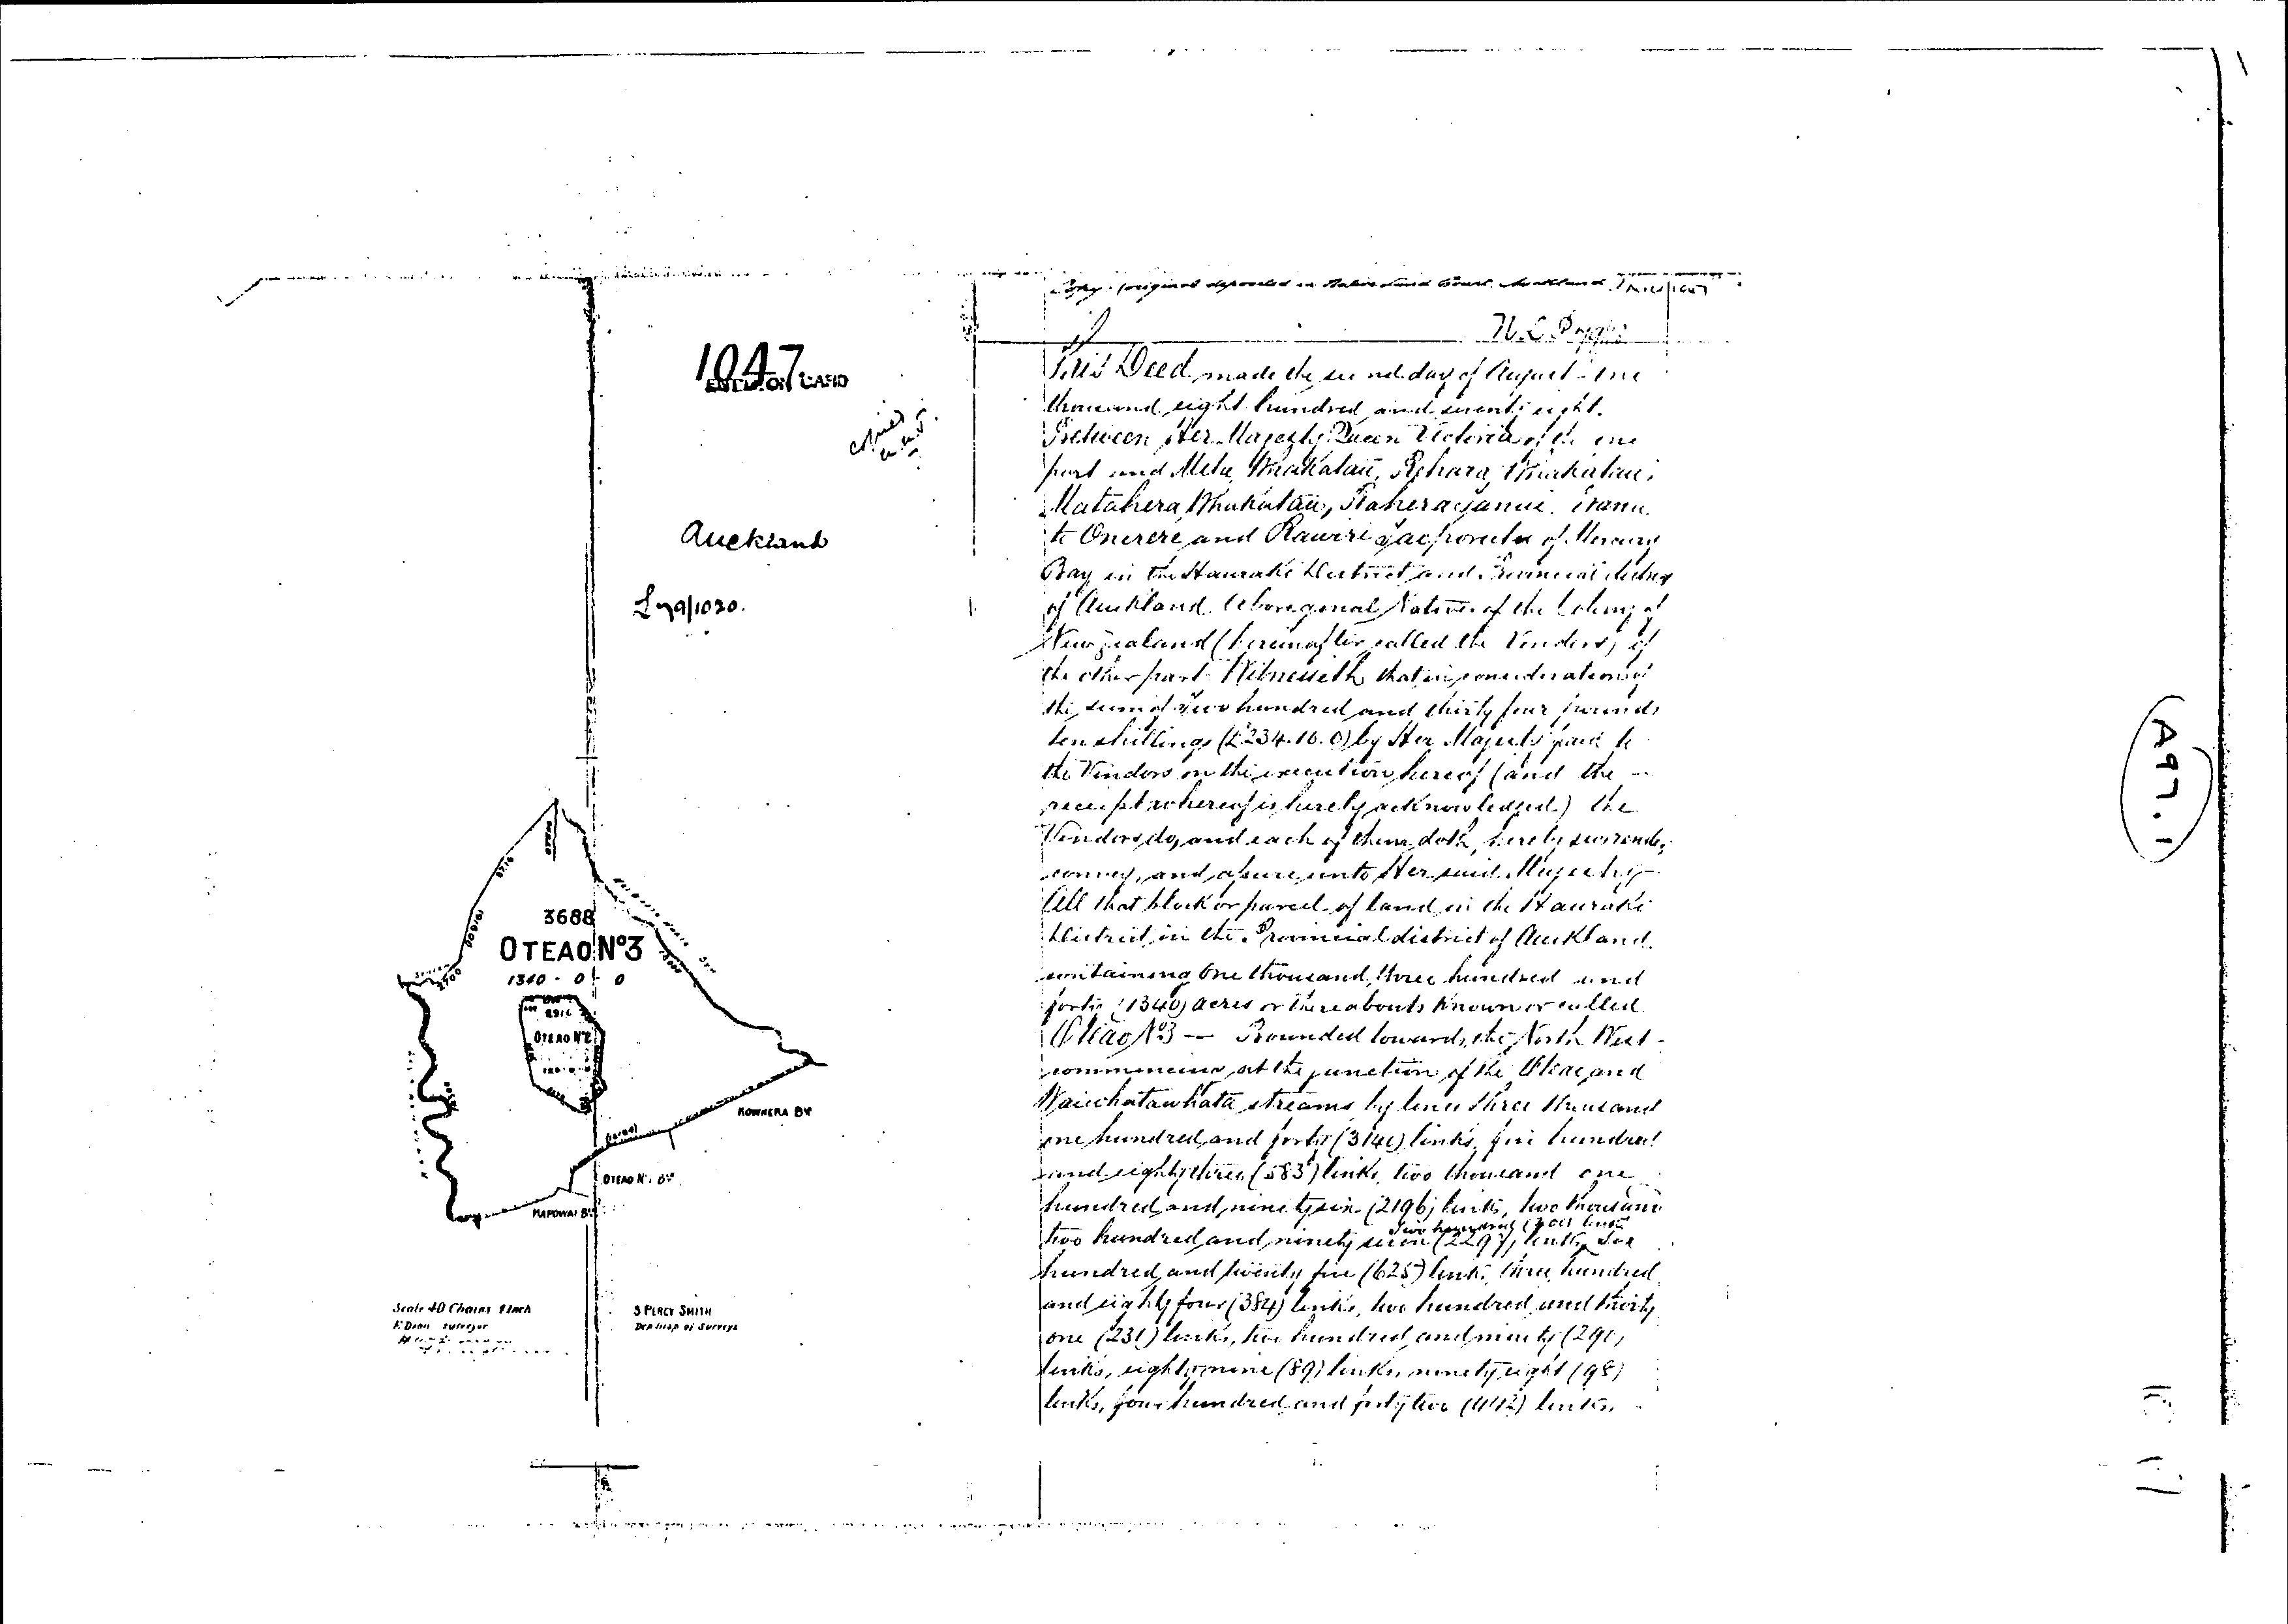 1047
Auckland
L79/1020.
3688
OTEAO Nº3
1340 - 0 - 0
OTEAO Nº2
KOWHERA Bk
OTEAO Nº1 Bk
KAPOWAI Bk
Scale 40 Chains 1 Inch
Surveyor
S PERCY SMITH
Dep Insp of Surveys
Copy (original deposited in Native Land Court Auckland
This Deed made the second day of August one
thousand eight hundred and seventy eight.
Between Her Majesty Queen Victoria of the one
part and Meha Whakatau,
Matahera Whakatau,
te Onerere and Rawiri of Mercury
Bay in the Hauraki District and Provincial district
of Auckland Aboriginal Natives of the Colony of
New Zealand (hereinafter called the Vendors) of
the other part Witnesseth that in consideration of
the sum of two hundred and thirty four pounds
ten shillings (£234.10.0) by Her Majesty paid to
the Vendors on the execution hereof (and the
receipt whereof is hereby acknowledged) the
Vendors do, and each of them doth, hereby surrender,
convey, and assure unto Her said Majesty
All that block or parcel of land in the Hauraki
District in the Provincial district of Auckland
containing One thousand three hundred and
forty (1340) acres or thereabouts known or called
Oteao Nº3 — Bounded towards the North West
commencing at the junction of the Oteao and
Waiwhatawhata streams by lines three thousand
one hundred and forty (3140) links, five hundred
and eighty three (583) links, two thousand one
hundred and ninety six (2196) links, two thousand
two hundred (200) links
two hundred and ninety seven (2297) links, six
hundred and twenty five (625) links, three hundred
and eighty four (384) links, two hundred and thirty
one (231) links, two hundred and ninety (290)
links, eighty nine (89) links, ninety eight (98)
links, four hundred and forty two (442) links,
A97.1